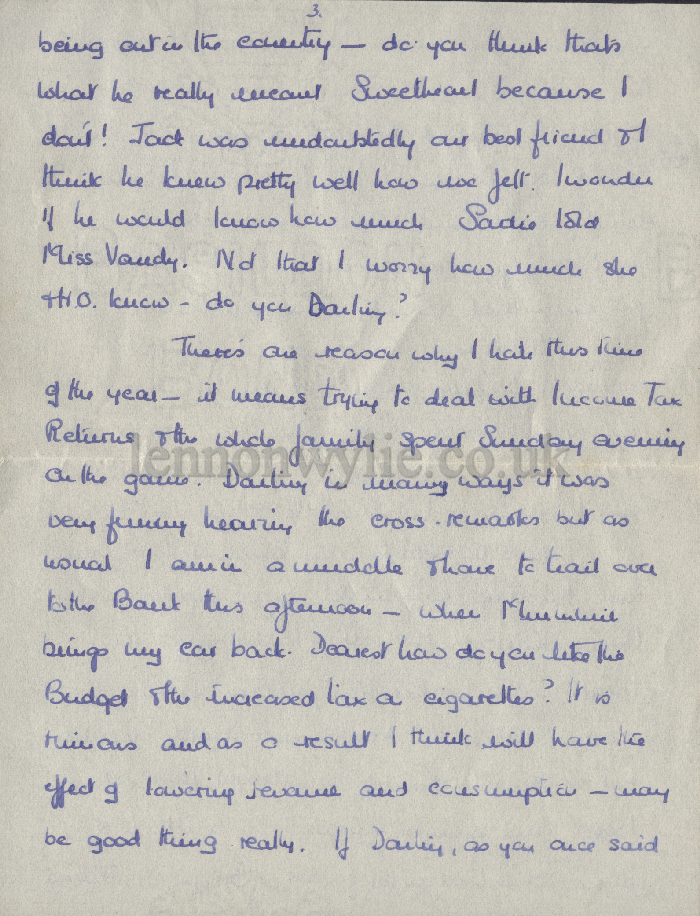 3.
being out in the country — do you think thats
what he really meant Sweetheart because I
don't! Jack was undoubtedly our best friend & I
think he knew pretty well how we felt. I wonder
if he would know how much Sadie told
Miss Vandy. Not that I worry how much she
& H.O. know - do you Darling?
There's one reason why I hate this time
of the year — it means trying to deal with Income Tax
Returns & the whole family spent Sunday evening
on the game. Darling in many ways it was
very funny hearing the cross-remarks but as
usual I am in a muddle & have to trail over
to the Bank this afternoon — when Mummie
brings my car back. Dearest how do you like the
Budget & the increased tax on cigarettes? It is
ruinous and as a result I think will have the
effect of lowering revenue and consumption — may
be good thing really. If Darling, as you once said
lennonwylie.co.uk